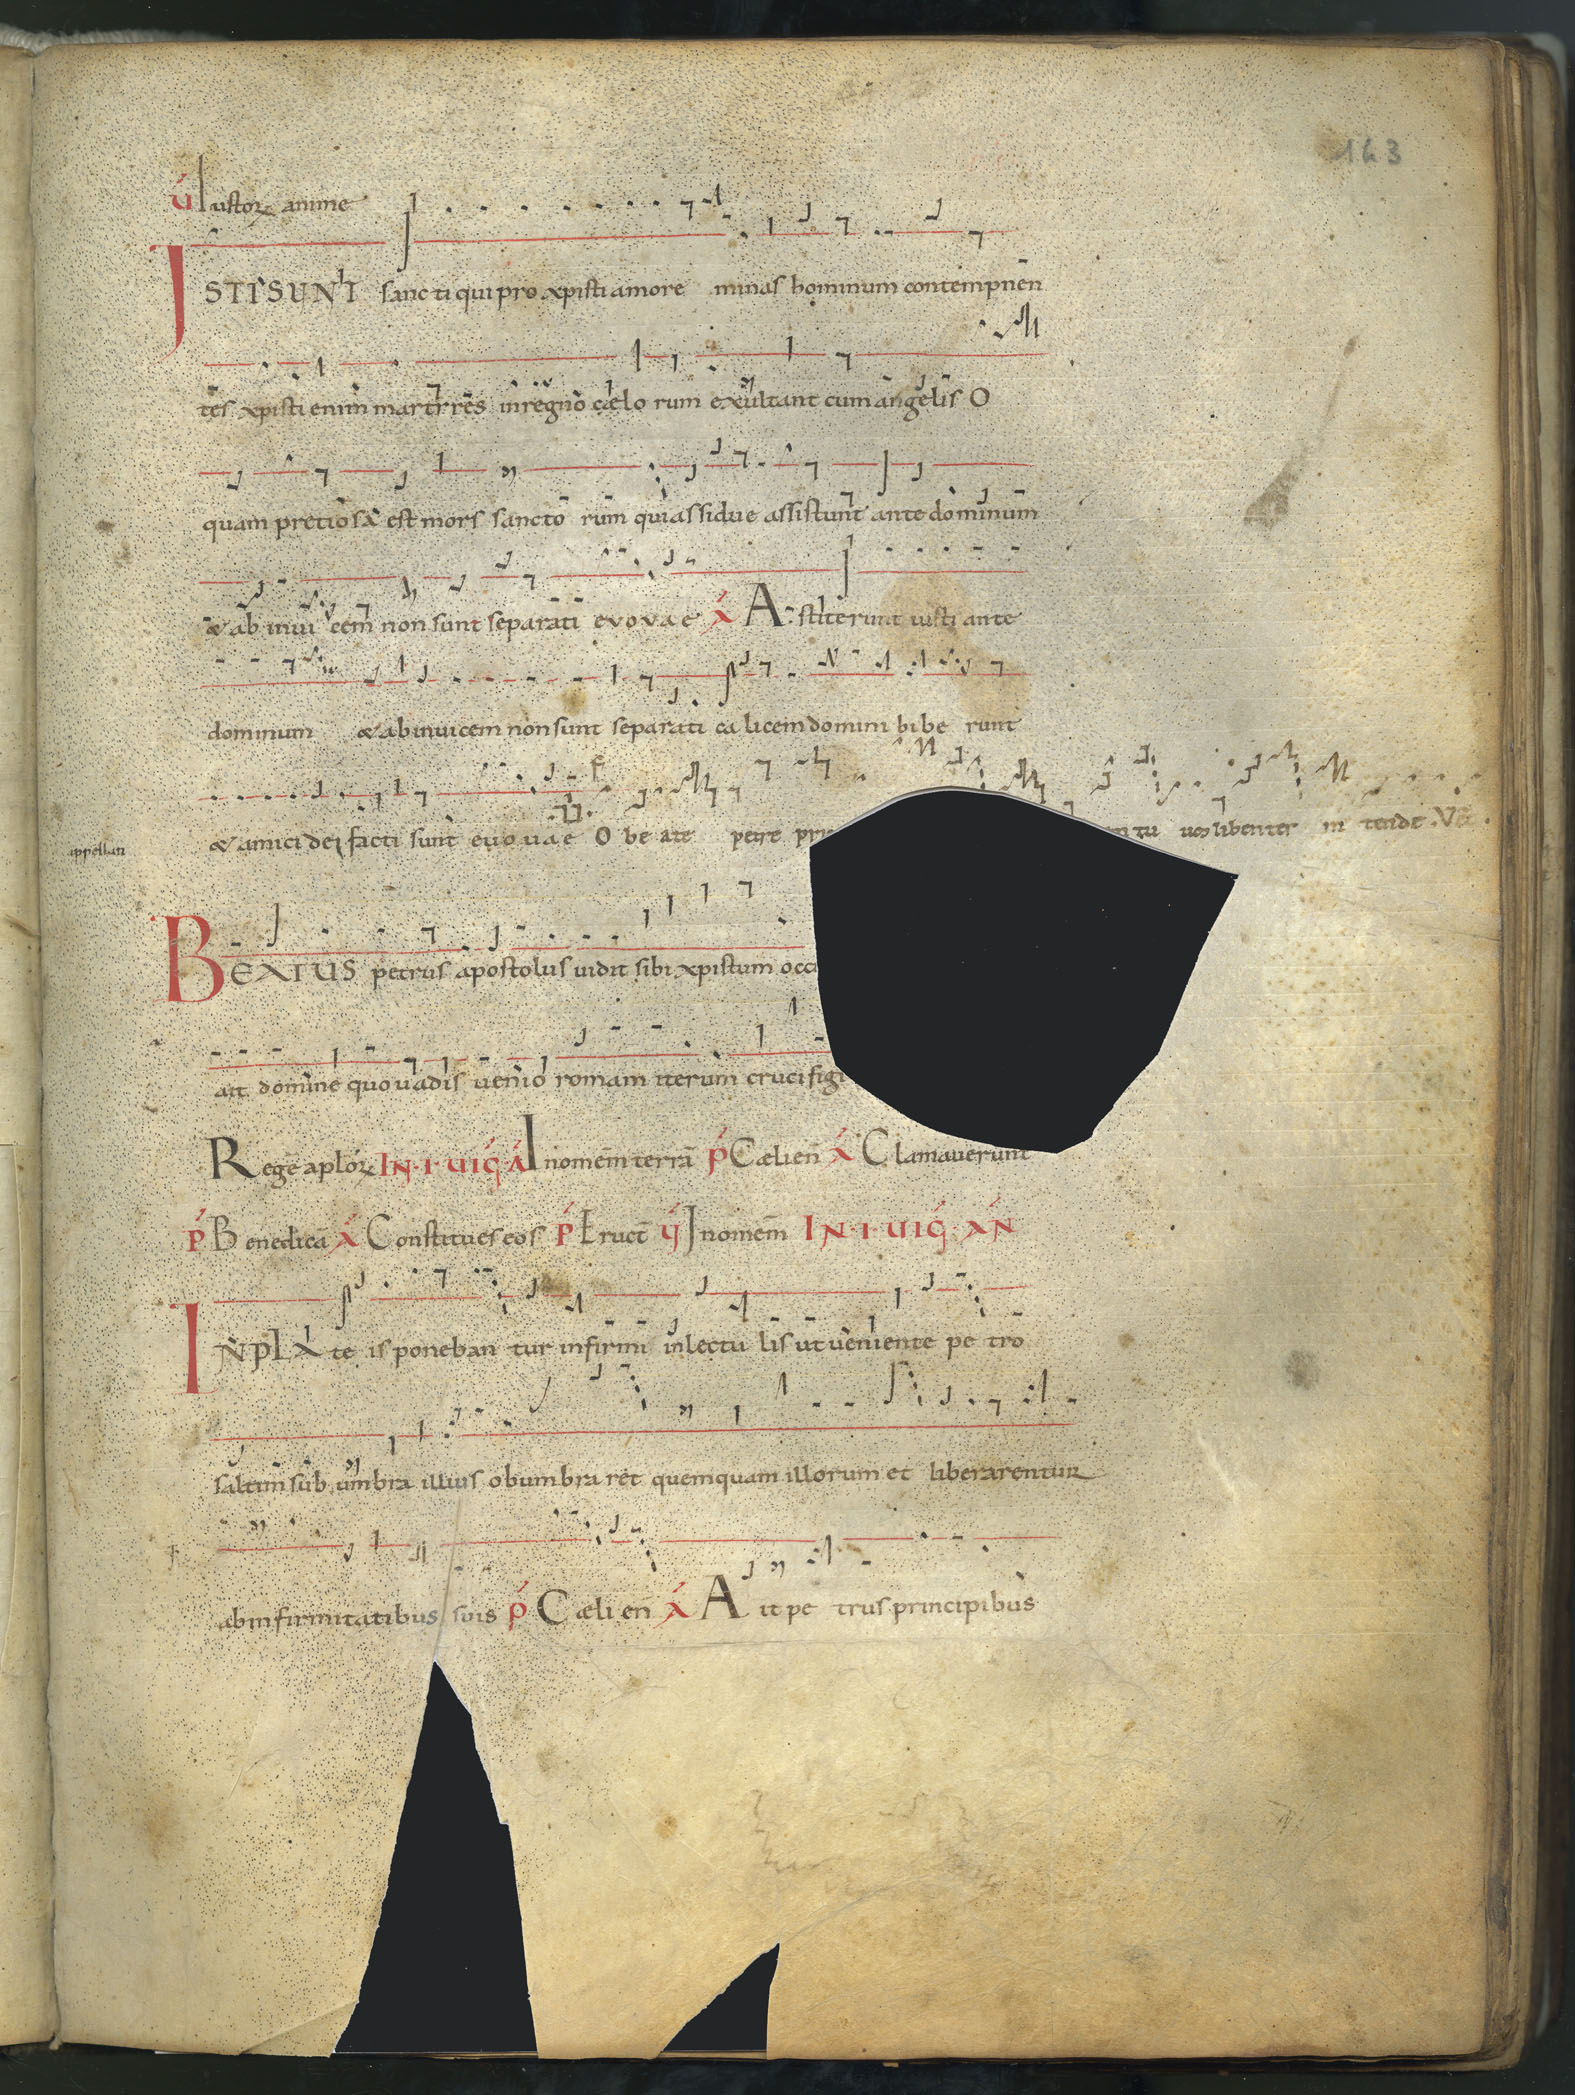 163
v̄ Iustorꝝ anime
ISTI SUNT sancti qui pro xpisti amore minas hominum contempnen
tes xpisti enim martyres in regno cælorum exultant cum angelis O
quam pretiosa est mors sanctorum qui assidue assistunt ante dominum
& ab inuicem non sunt separati evovae a Astiterunt iusti ante
dominum & ab inuicem non sunt separati calicem domini biberunt
& amici dei facti sunt euouae O beate petre tu uos libenter intende
appellan
BEATUS petrus apostolus uidit sibi xpistum occ
ait domine quo uadis uenio romam iterum crucifigi
Regē aplorꝝ IN·I·UIG̅ A In omem̄ terrā p̄ Cælien̄ a Clamauerunt
p̄ Benedicā a Constitues eos p̄ Eructt̄ v̄ In omem̄ IN·I·UIG̅·AN̄
IN PLAteis ponebantur infirmi in lectulis ut ueniente petro
saltim sub umbra illius obumbraret quemquam illorum et liberarentur
ab infirmitatibus suis p̄ Cælien̄ a Ait petrus principibus